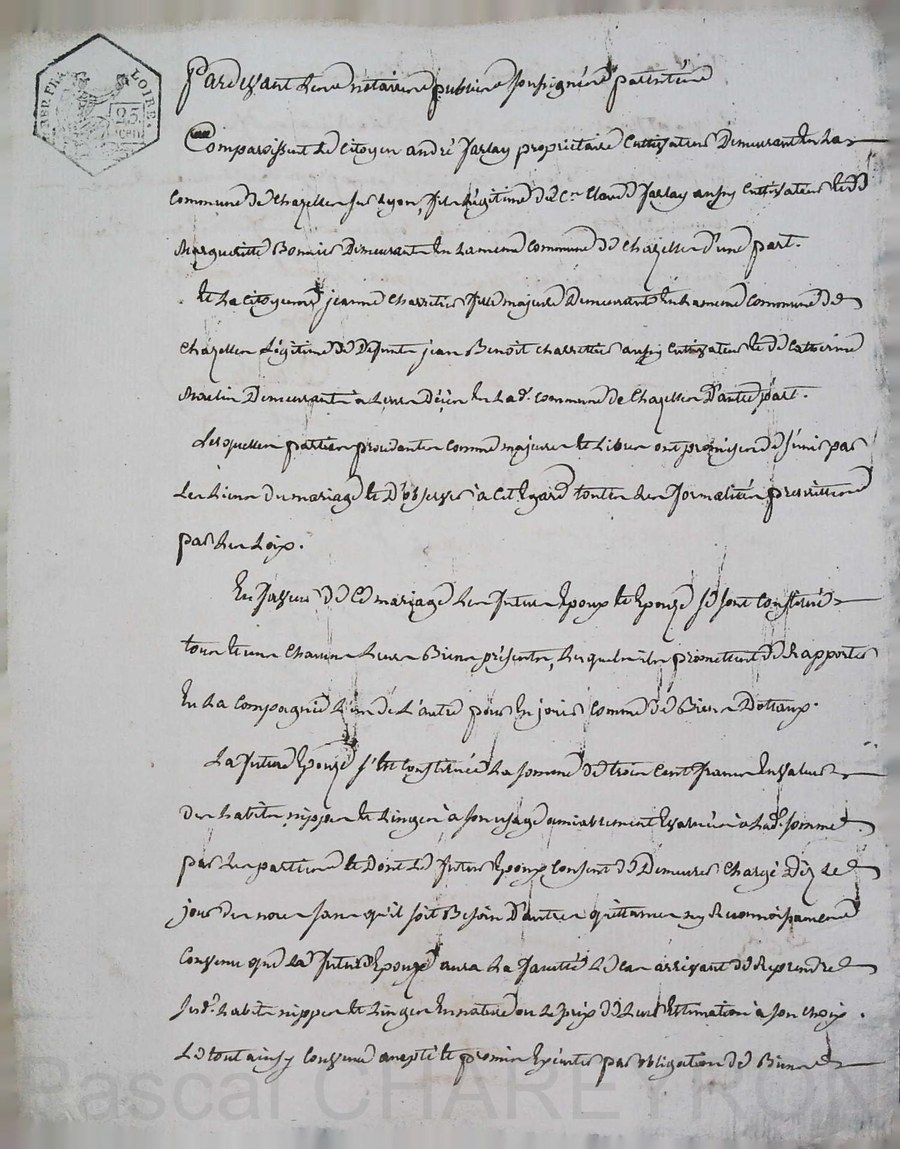 REP. FRA
LOIRE.
25
cen
Pardevant Lene notaire public soussigné patenté
Comparoissent Le Citoyen andré farlay propriétaire Cultivateur Demeurant En La
Commune de Chazelles sur Lyon, fils Légitime de Cn. Claude farlay aussy Cultivateur Et de
Margueritte Bonnier Demeurants En La meme Commune de Chazelles d'une part.
Et La Citoyenne jeanne Charretier fille majeure Demeurante En La meme Commune de
Chazelles Légitime de Defunts jean Benoit charrettier aussy Cultivateur Et de Catherine
Moulin Demeurants à Leurs Décès En La de. Commune de Chazelles D'autre part.
Lesquelles parties procedantes comme majeures Et Libres ont promis de s'unir par
Les Liens du mariage Et D'observer à Cet Egard toutes Les formalités prescrittes
par Les Loix.
En faveur de Ce mariage Les futurs Epoux Et Epouze se sont Constitués
tous Et uns Chacuns Leurs Biens présents, Lesquels ils promettent de Rapporter
En La Compagnie L'un de L'autre pour En jouir Comme de Biens Dottaux.
La future Epouze s'est Constituée La somme de trois Cent francs En valeur
des habits nippes Et Linges à son usage amiablement Evalués à La de. somme
par Les parties Et Dont Le futur Epoux Consent de Demeurer Chargé Dèz Le
jour des noces sans qu'il soit Besoin D'autres quittances ny Reconnoissances
Convenu que La future Epouze aura La faculté Le Cas arrivant de Reprendre
Sesd. habits nippes Et Linges En nature ou Le prix de Leur Estimation à son choix.
Le tout ainsy Convenu accepté Et promis Exécuter par obligation de Biens
Pascal CHAREYRON